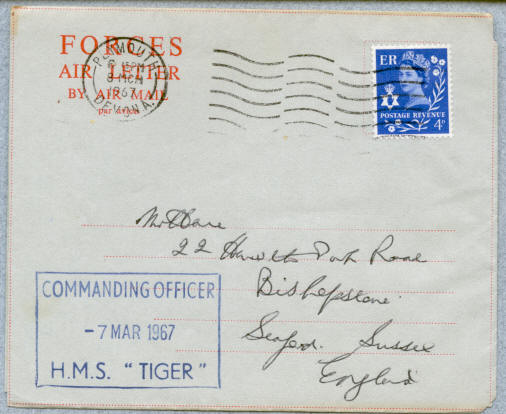 FORCES
AIR LETTER
BY AIR MAIL
par avion
PLYMOUTH
1967
DEVON A.
ER
POSTAGE REVENUE
4D
22 Park Road
Bishopstone
Seaford. Sussex
England
COMMANDING OFFICER
-7 MAR 1967
H.M.S. "TIGER"